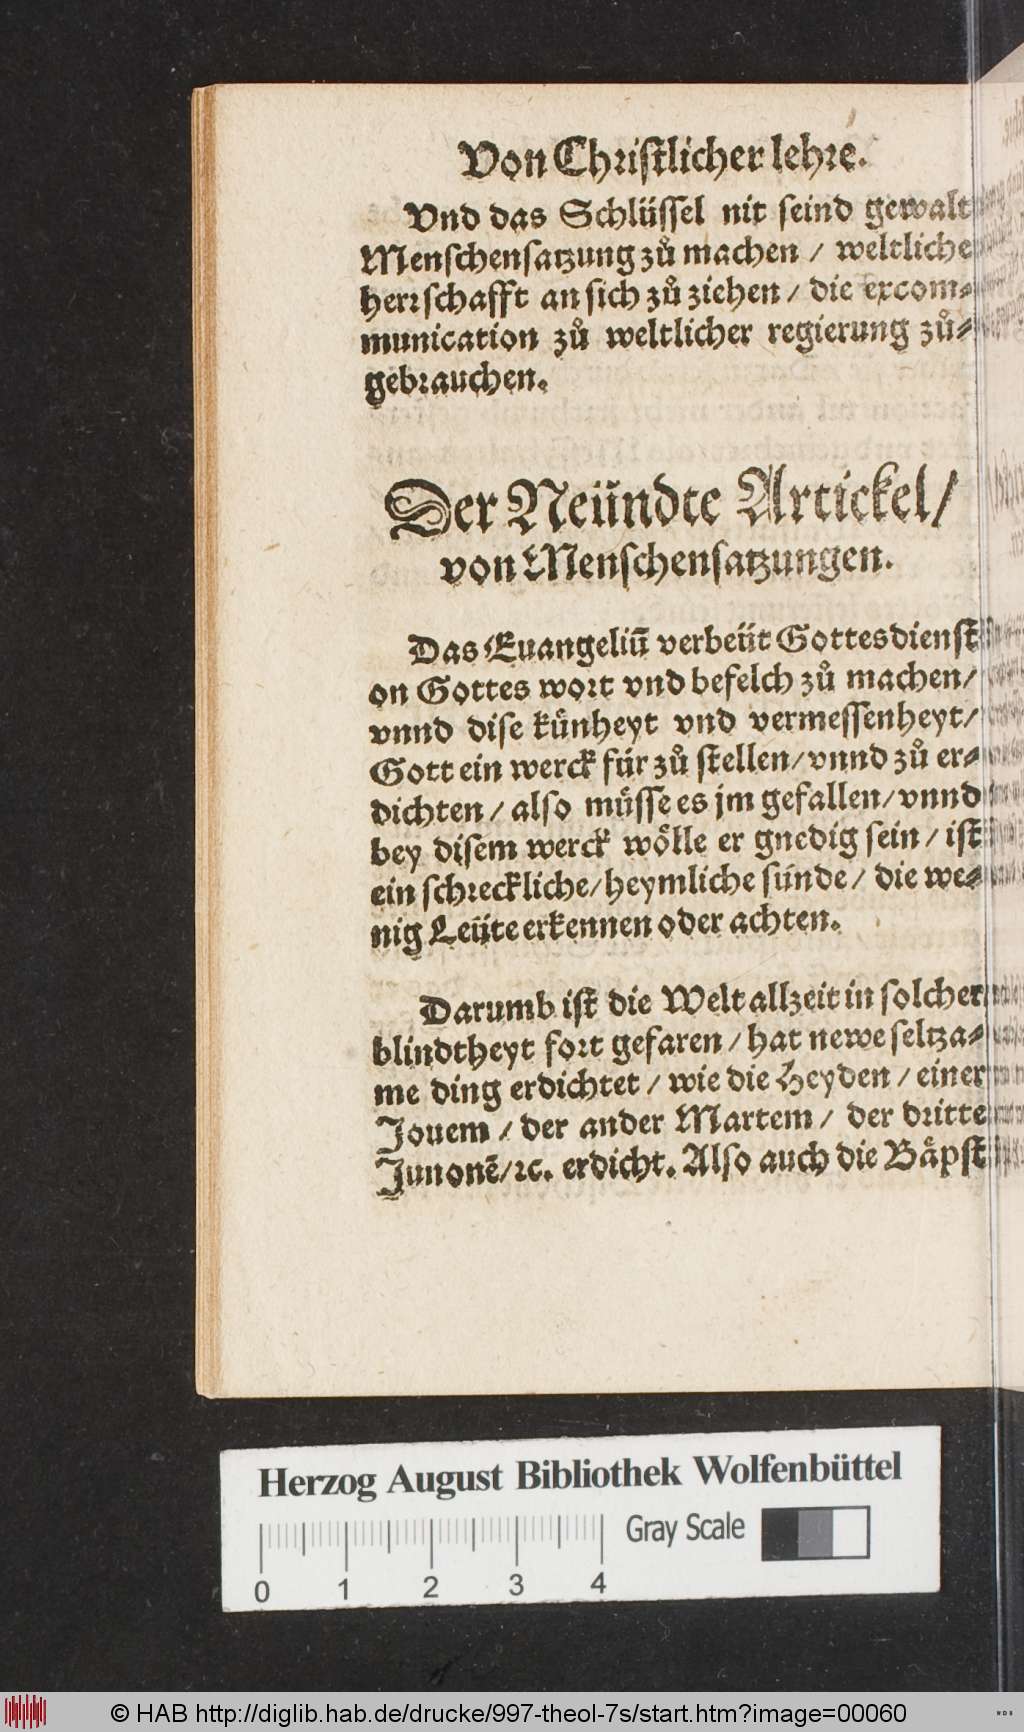 Von Christlicher lehre.
Vnd das Schlüssel nit seind gewalt
Menschensatzung zů machen / weltliche
herrschafft an sich zů ziehen / die excom⸗
munication zů weltlicher regierung zů⸗
gebrauchen.
Der Neündte Artickel /
von Menschensatzungen.
Das Euangeliū verbeüt Gottesdienst
on Gottes wort vnd befelch zů machen /
vnnd dise künheyt vnd vermessenheyt /
Gott ein werck für zů stellen / vnnd zů er⸗
dichten / also müsse es jm gefallen / vnnd
bey disem werck wölle er gnedig sein / ist
ein schreckliche / heymliche sünde / die we⸗
nig Leüte erkennen oder achten.
Darumb ist die Welt allzeit in solcher
blindtheyt fort gefaren / hat newe seltza⸗
me ding erdichtet / wie die Heyden / einer
Jouem / der ander Martem / der dritte
Junonē / ꝛc. erdicht. Also auch die Bäpst
Herzog August Bibliothek Wolfenbüttel
Gray Scale
0 1 2 3 4
© HAB http://diglib.hab.de/drucke/997-theol-7s/start.htm?image=00060